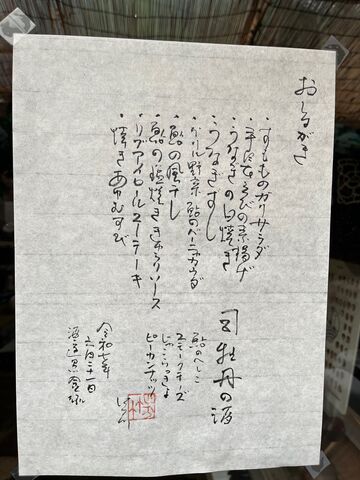 おしながき
・すもものカリサラダ
・手長えびの素揚げ
・うなぎの白焼き
・うなぎすし
・グリル野菜 鮎のバーニャカウダ
・鮎の風干し
・鮎の塩焼ききゅうりソース
・リブアイロールステーキ
・焼きあゆむすび
司牡丹の酒
鮎のへしこ
スモークチーズ
じゃこらっきょ
ピーカンナッツ
令和七年
六月二十一日